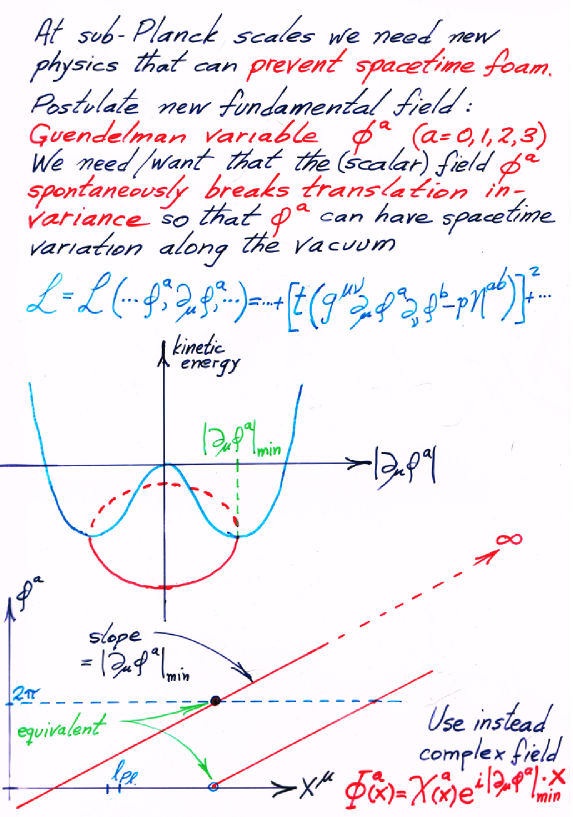 At sub-Planck scales we need new
physics that can prevent spacetime foam.
Postulate new fundamental field:
Guendelman variable ϕᵃ (a=0,1,2,3)
We need/want that the (scalar) field ϕᵃ
spontaneously breaks translation in-
variance so that ϕᵃ can have spacetime
variation along the vacuum
ℒ = ℒ(⋯ϕᵃ,∂μϕᵃ,⋯)=⋯+[t(g^μν ∂μϕᵃ∂νϕᵇ-pηᵃᵇ)]²+⋯
kinetic
energy
|∂μϕᵃ|min
|∂μϕᵃ|
∞
ϕᵃ
slope
=|∂μϕᵃ|min
2π
equivalent
lPl.
X^μ
Use instead
complex field
Φᵃ(x)=χᵃ(x)e^i|∂μϕᵃ|min·x